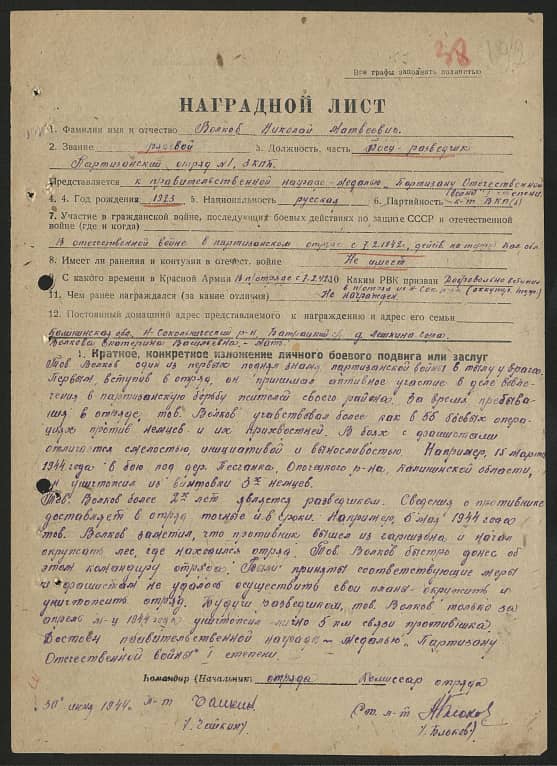 38
Все графы заполнять полностью
НАГРАДНОЙ ЛИСТ
1. Фамилия имя и отчество Волков Николай Матвеевич.
2. Звание рядовой 3. Должность, часть боец-разведчик
Партизанский отряд №1, 3КПБ.
Представляется к правительственной награде - медалью "Партизану Отечественной
войны" I степени.
4. 4. Год рождения 1923 5. Национальность русская 6. Партийность к-т ВКП(б)
7. Участие в гражданской войне, последующих боевых действиях по защите СССР и отечественной
войне (где и когда)
В отечественной войне в партизанском отряде с 7.2.1942г., действ. на терр. Кал. обл.
8. Имеет ли ранения и контузии в отечест. войне Не имеет
9. С какого времени в Красной Армии В п/отряде с 7.2.42 10 Каким РВК призван Добровольно вступил
в п/отряд из
11. Чем ранее награждался (за какие отличия) Не награжден.
12. Постоянный домашний адрес представляемого к награждению и адрес его семьи
Калининская обл., Н-Сокольнический р-н, д.
Волкова Екатерина - мать.
1. Краткое, конкретное изложение личного боевого подвига или заслуг
Тов. Волков один из первых поднял знамя партизанской войны в тылу у врага.
Первым, вступив в отряд, он принимал активное участие в деле вовле-
чения в партизанскую борьбу жителей своего района. За время пребыва-
ния в отряде, тов. Волков участвовал более как в 56 боевых опера-
циях против немцев и их прихвостней. В боях с фашистами
отличается смелостью, инициативой и выносливостью. Например, 15 марта
1944 года в бою под дер. Песчанка, Опочецкого р-на, Калининской области,
он уничтожил из винтовки 3х немцев.
Тов. Волков более 2х лет является разведчиком. Сведения о противнике
доставляет в отряд точные и в сроки. Например, 6 мая 1944 года
тов. Волков заметил, что противник вышел из гарнизона и начал
окружать лес, где находился отряд. Тов. Волков быстро донес об
этом командиру отряда. Были приняты соответствующие меры
и фашистам не удалось осуществить свои планы - окружить и
уничтожить отряд. Будучи разведчиком, тов. Волков только за
апрель м-ц 1944 года уничтожил лично 5 км связи противника.
Достоин правительственной награды - медалью "Партизану
Отечественной войны" I степени. -
Командир (Начальник) отряда Комиссар отряда
30 июня 1944. л-т
/. Чайкин/ /. Блохов/